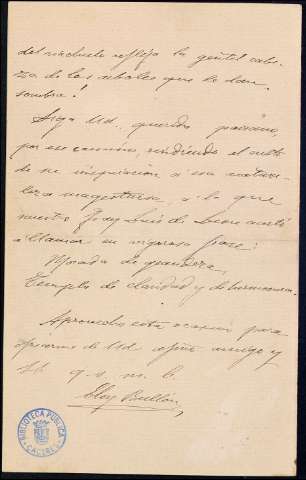 del riachuelo refleja la gentil cabe-
za de los árboles que le dan
sombra!
Siga Ud., querido paisano,
por ese camino, rindiendo el culto
de su inspiración a esa natura-
leza magestuosa, a la que
nuestro Fray Luis de Leon acertó
a llamar en vigorosa frase:
Morada de grandeza,
Templo de claridad y de hermosura.
Aprovecho esta ocasión para
de Ud. afmo. amigo y
q. s. m. b.
Eloy Bullón
BIBLIOTECA PÚBLICA
CÁCERES